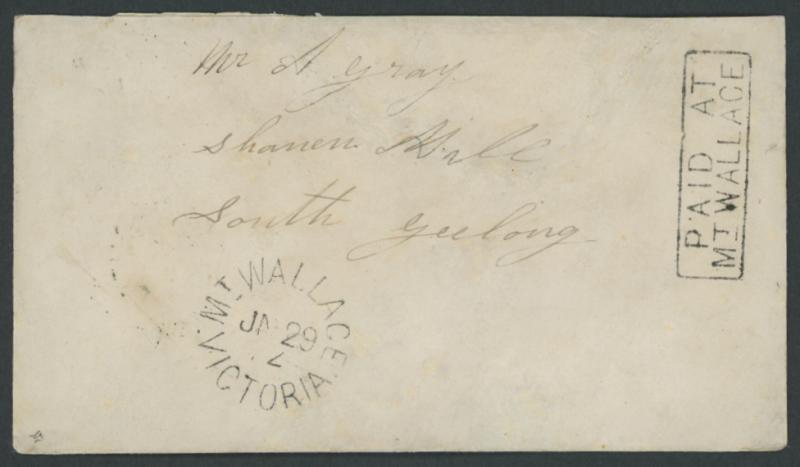 Mr A Gray
shanen Hill
South Geelong
PAID AT
MT WALLACE
MT WALLACE
JA 29
VICTORIA